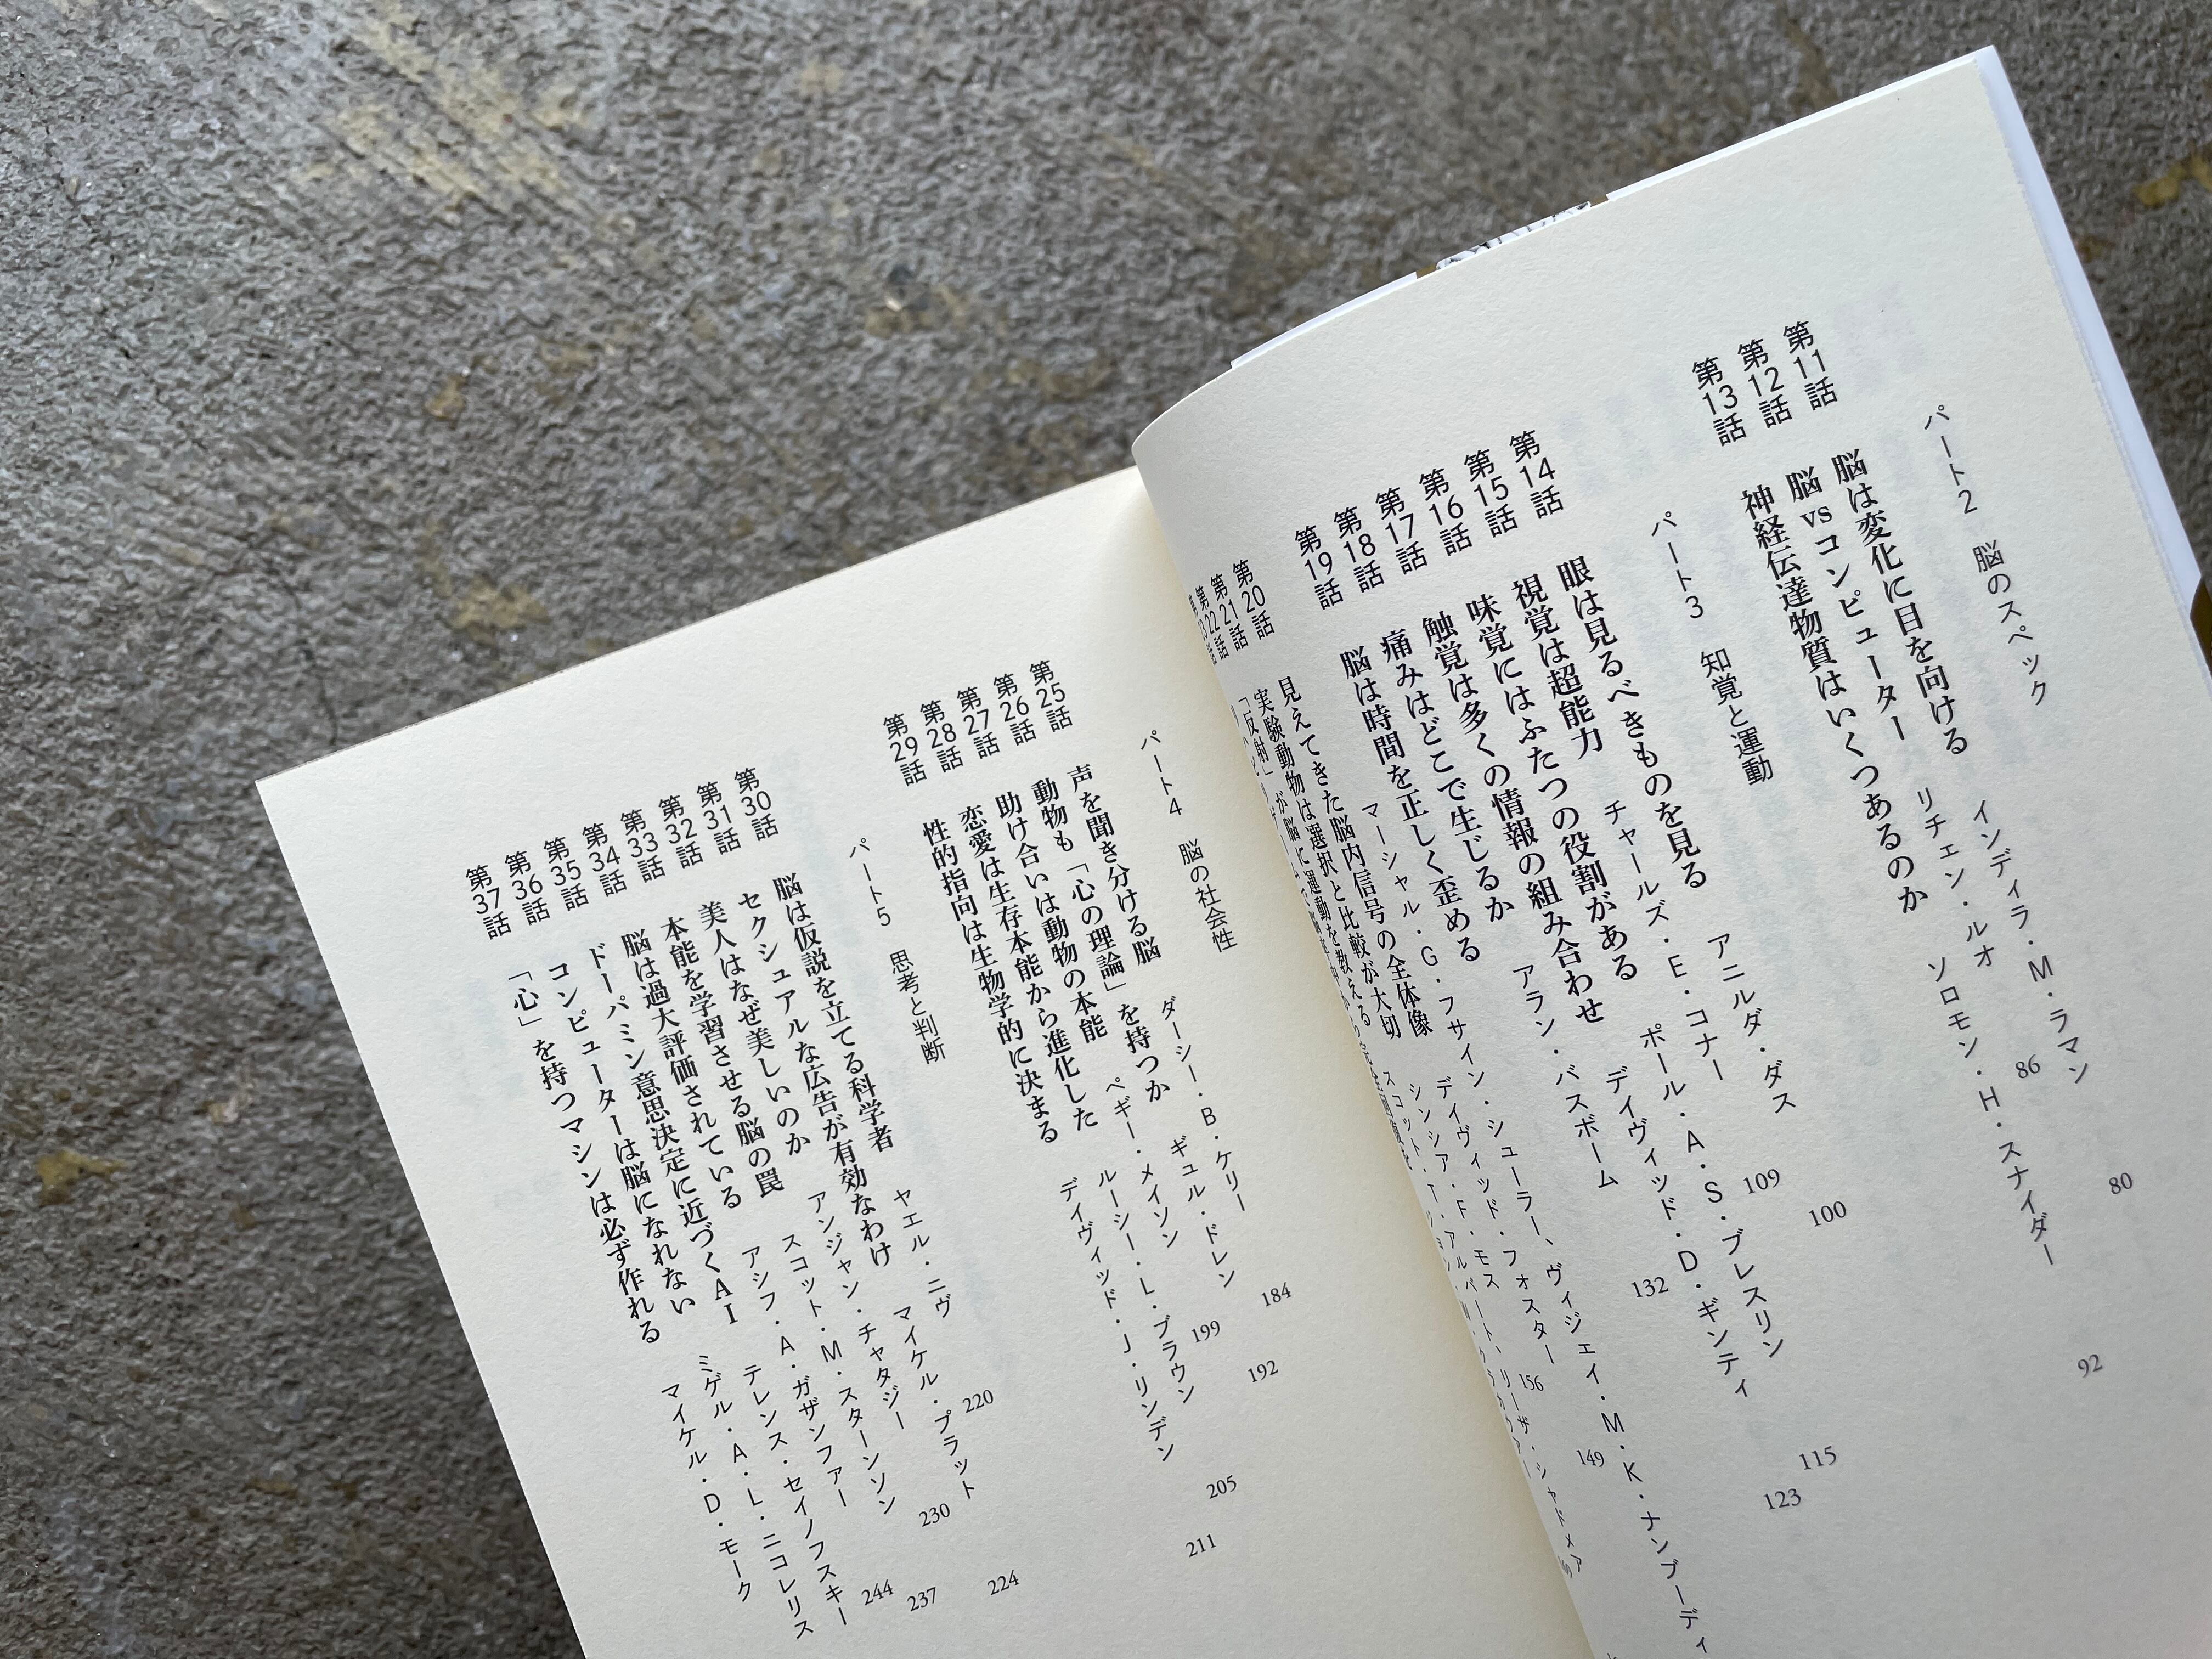 パート2 脳のスペック
第11話 脳は変化に目を向ける インディラ・M・ラマン 80
第12話 脳vsコンピューター リチェン・ルオ 86
第13話 神経伝達物質はいくつあるのか ソロモン・H・スナイダー 92
パート3 知覚と運動
第14話 眼は見るべきものを見る アニルダ・ダス 100
第15話 視覚は超能力 チャールズ・E・コナー 109
第16話 味覚にはふたつの役割がある ポール・A・S・ブレスリン 115
第17話 触覚は多くの情報の組み合わせ デイヴィッド・D・ギンティ 123
第18話 痛みはどこで生じるか アラン・バスボーム 132
第19話 脳は時間を正しく歪める マーシャル・G・フサイン・シューラー、ヴィジェイ・M・K・ナンブーディ
第20話 見えてきた脳内信号の全体像 デイヴィッド・フォスター 149
第21話 実験動物は選択と比較が大切 シンシア・F・モス 156
第22話 「反射」が脳に運動を教える
パート4 脳の社会性
第25話 声を聞き分ける脳 ダーシー・B・ケリー 184
第26話 動物も「心の理論」を持つか ギュル・ドレン 192
第27話 助け合いは動物の本能 ペギー・メイソン 199
第28話 恋愛は生存本能から進化した ルーシー・L・ブラウン 205
第29話 性的指向は生物学的に決まる デイヴィッド・J・リンデン 211
パート5 思考と判断
第30話 脳は仮説を立てる科学者 ヤエル・ニヴ 220
第31話 セクシュアルな広告が有効なわけ マイケル・プラット 224
第32話 美人はなぜ美しいのか アンジャン・チャタジー 230
第33話 本能を学習させる脳の罠 スコット・M・スターンソン 237
第34話 脳は過大評価されている アシフ・A・ガザンファー 244
第35話 ドーパミン意思決定に近づくAI テレンス・セイノフスキー
第36話 コンピューターは脳になれない ミゲル・A・L・ニコレリス
第37話 「心」を持つマシンは必ず作れる マイケル・D・モーク